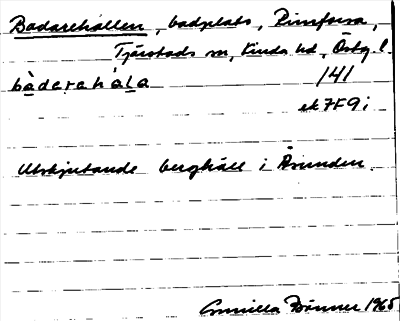 Badarehällen, badplats, Rimforsa,
Tjärstads sn, Kinda hd, Östg. l.
bàdarehàla /4/
ek 7F9i
Utskjutande berghäll i Åsunden.
Gunilla Bönner 1965